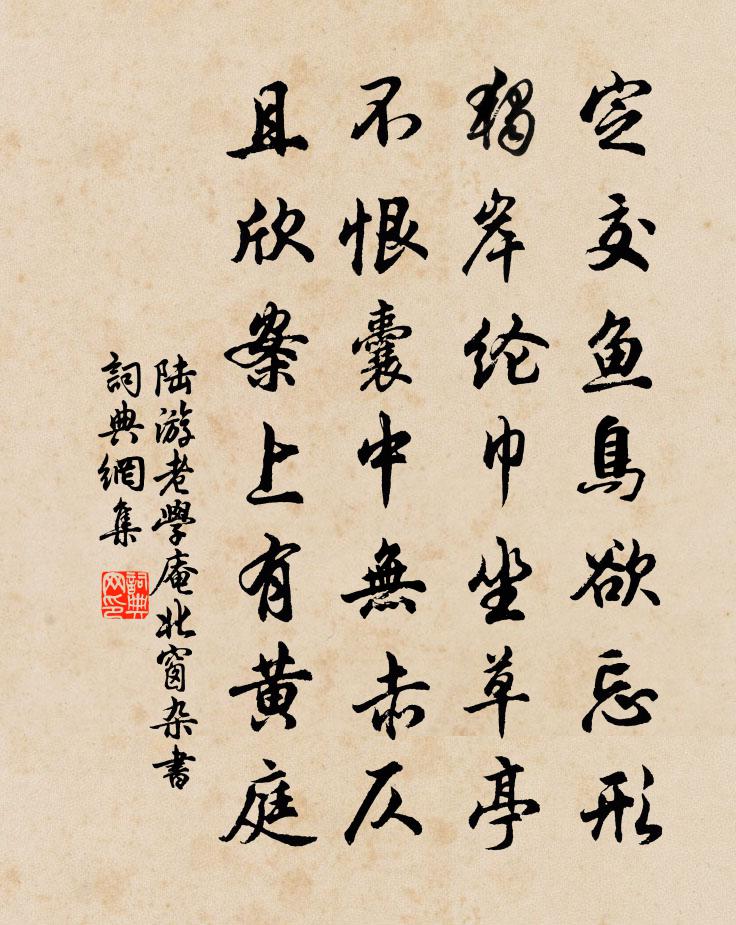 定交鱼鳥欲忘形
獨岸纶巾坐草亭
不恨囊中無赤仄
且欣案上有黄庭
陆游老學庵北窗杂書
詞典網集
詞典网印